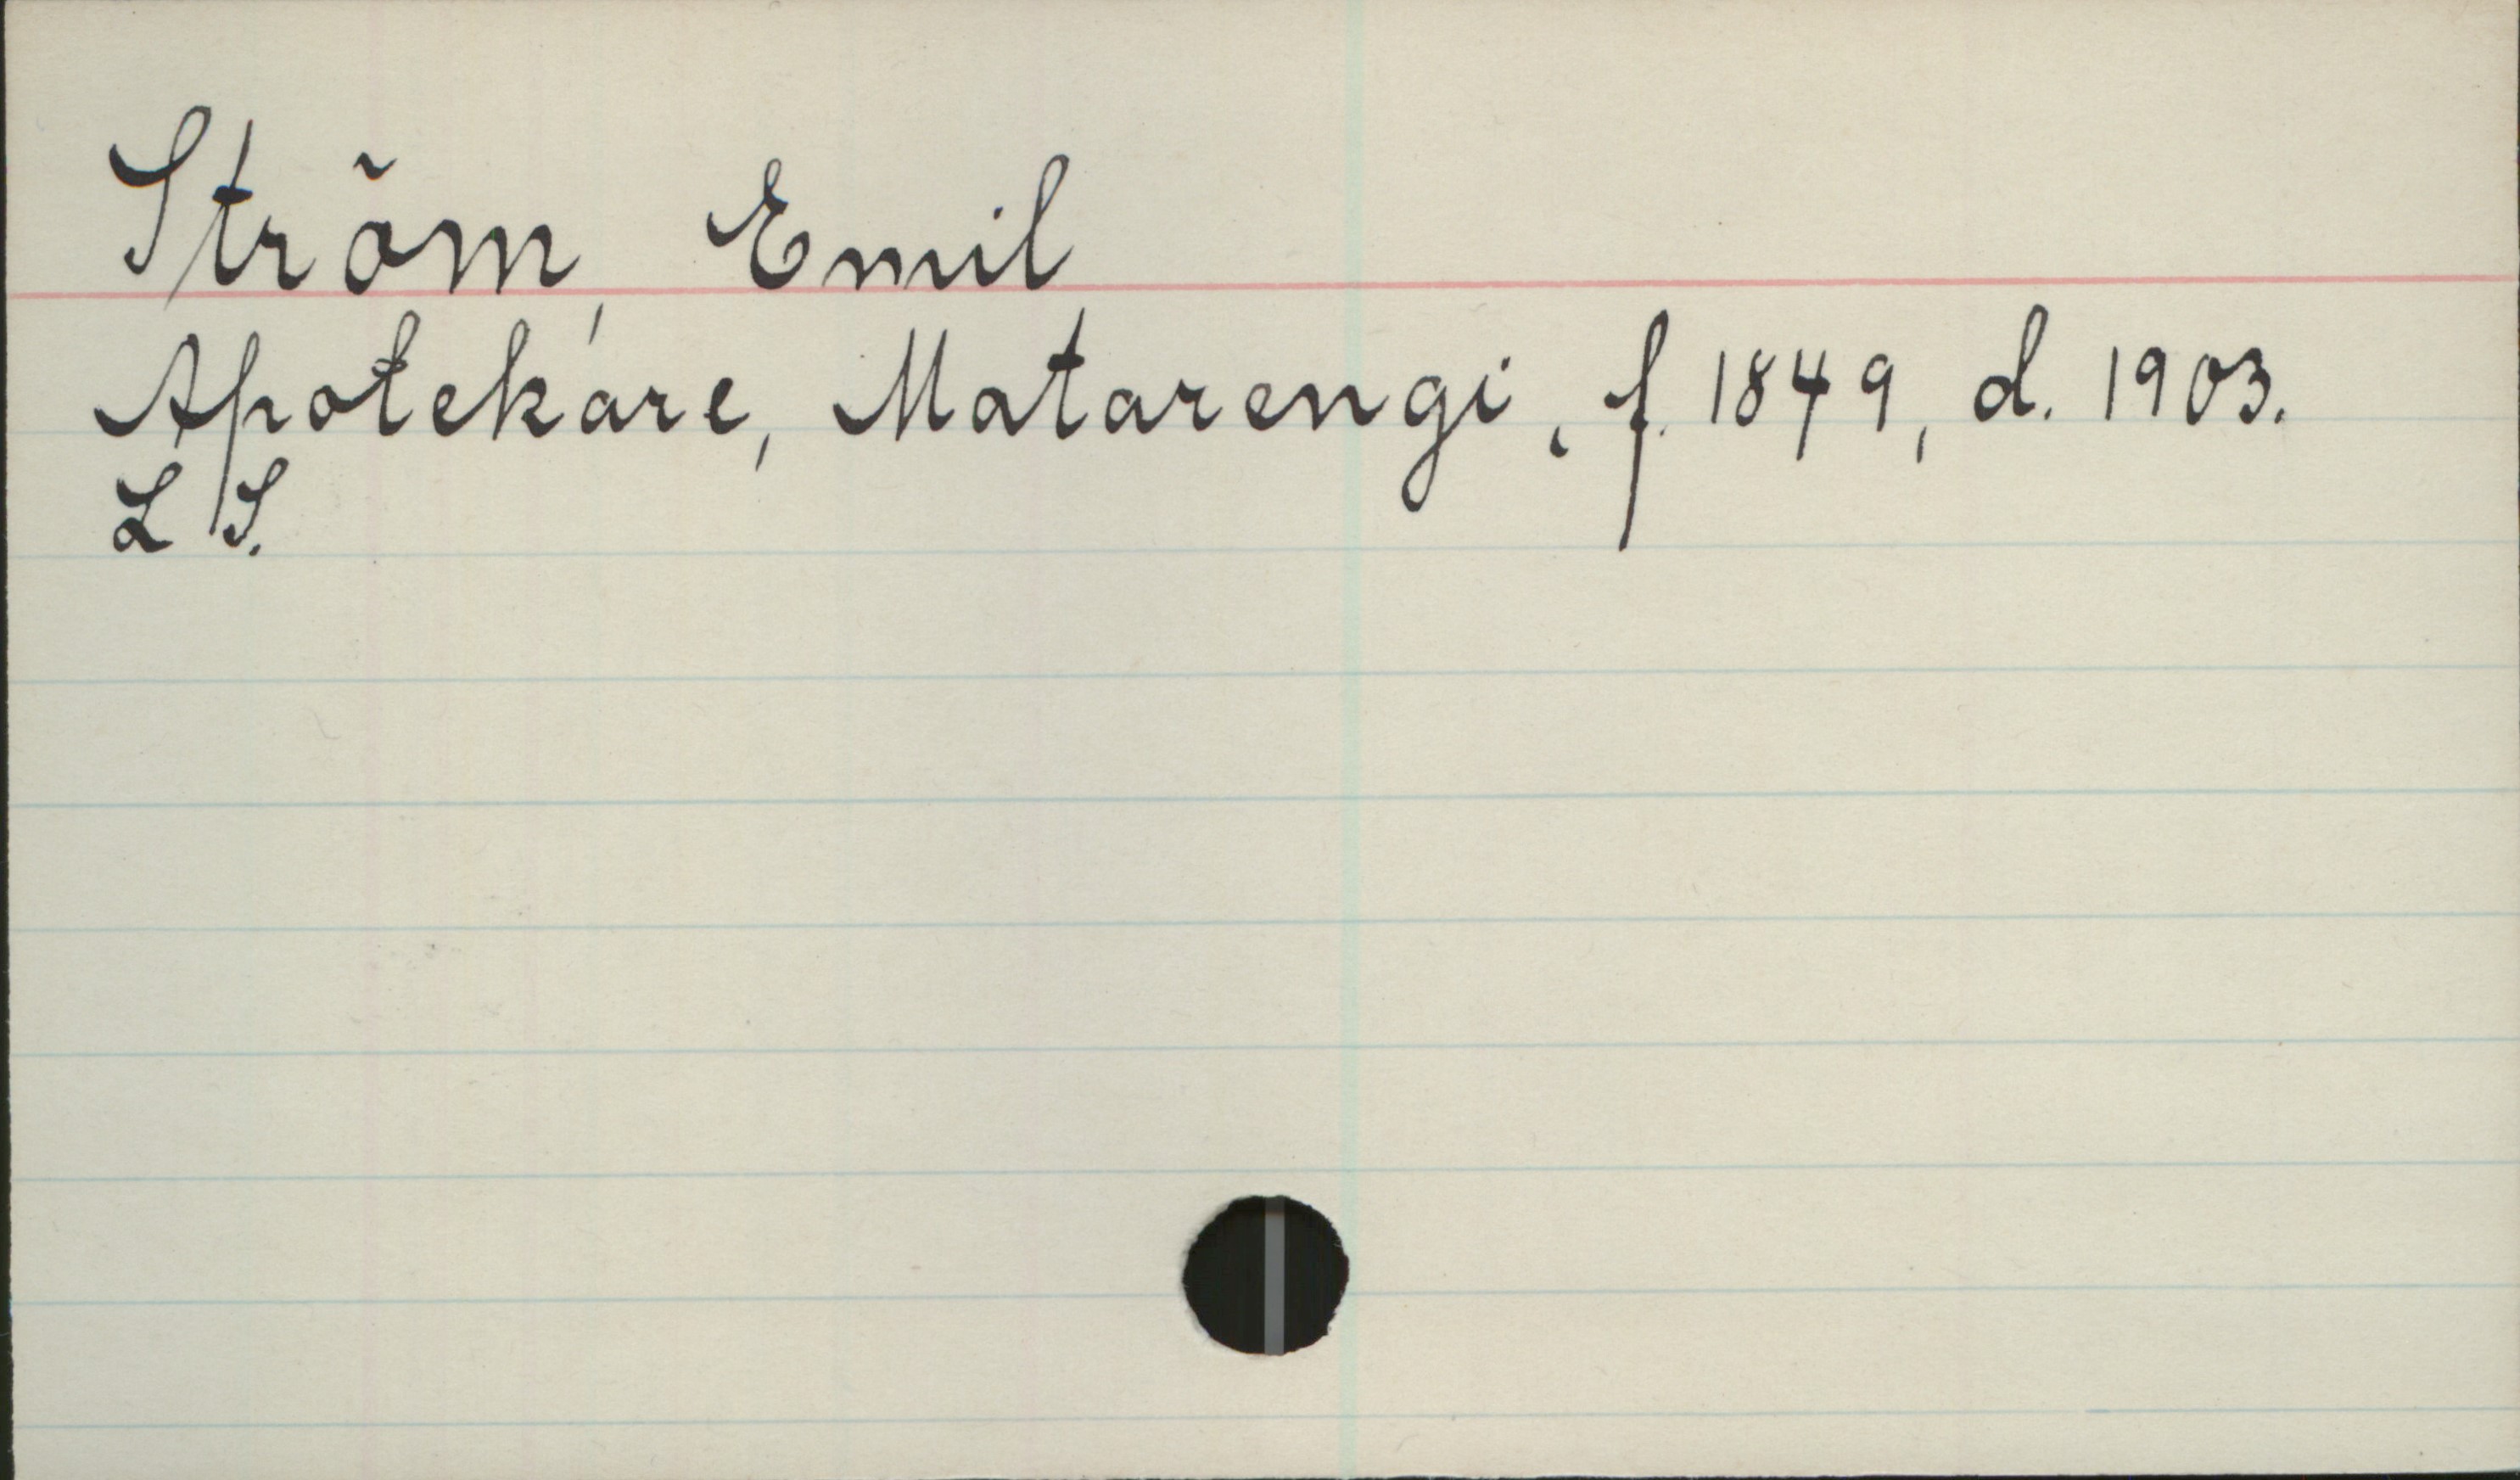 Ström, Emil
Apotekare, Matarengi, f. 1849, d. 1903.
L S.